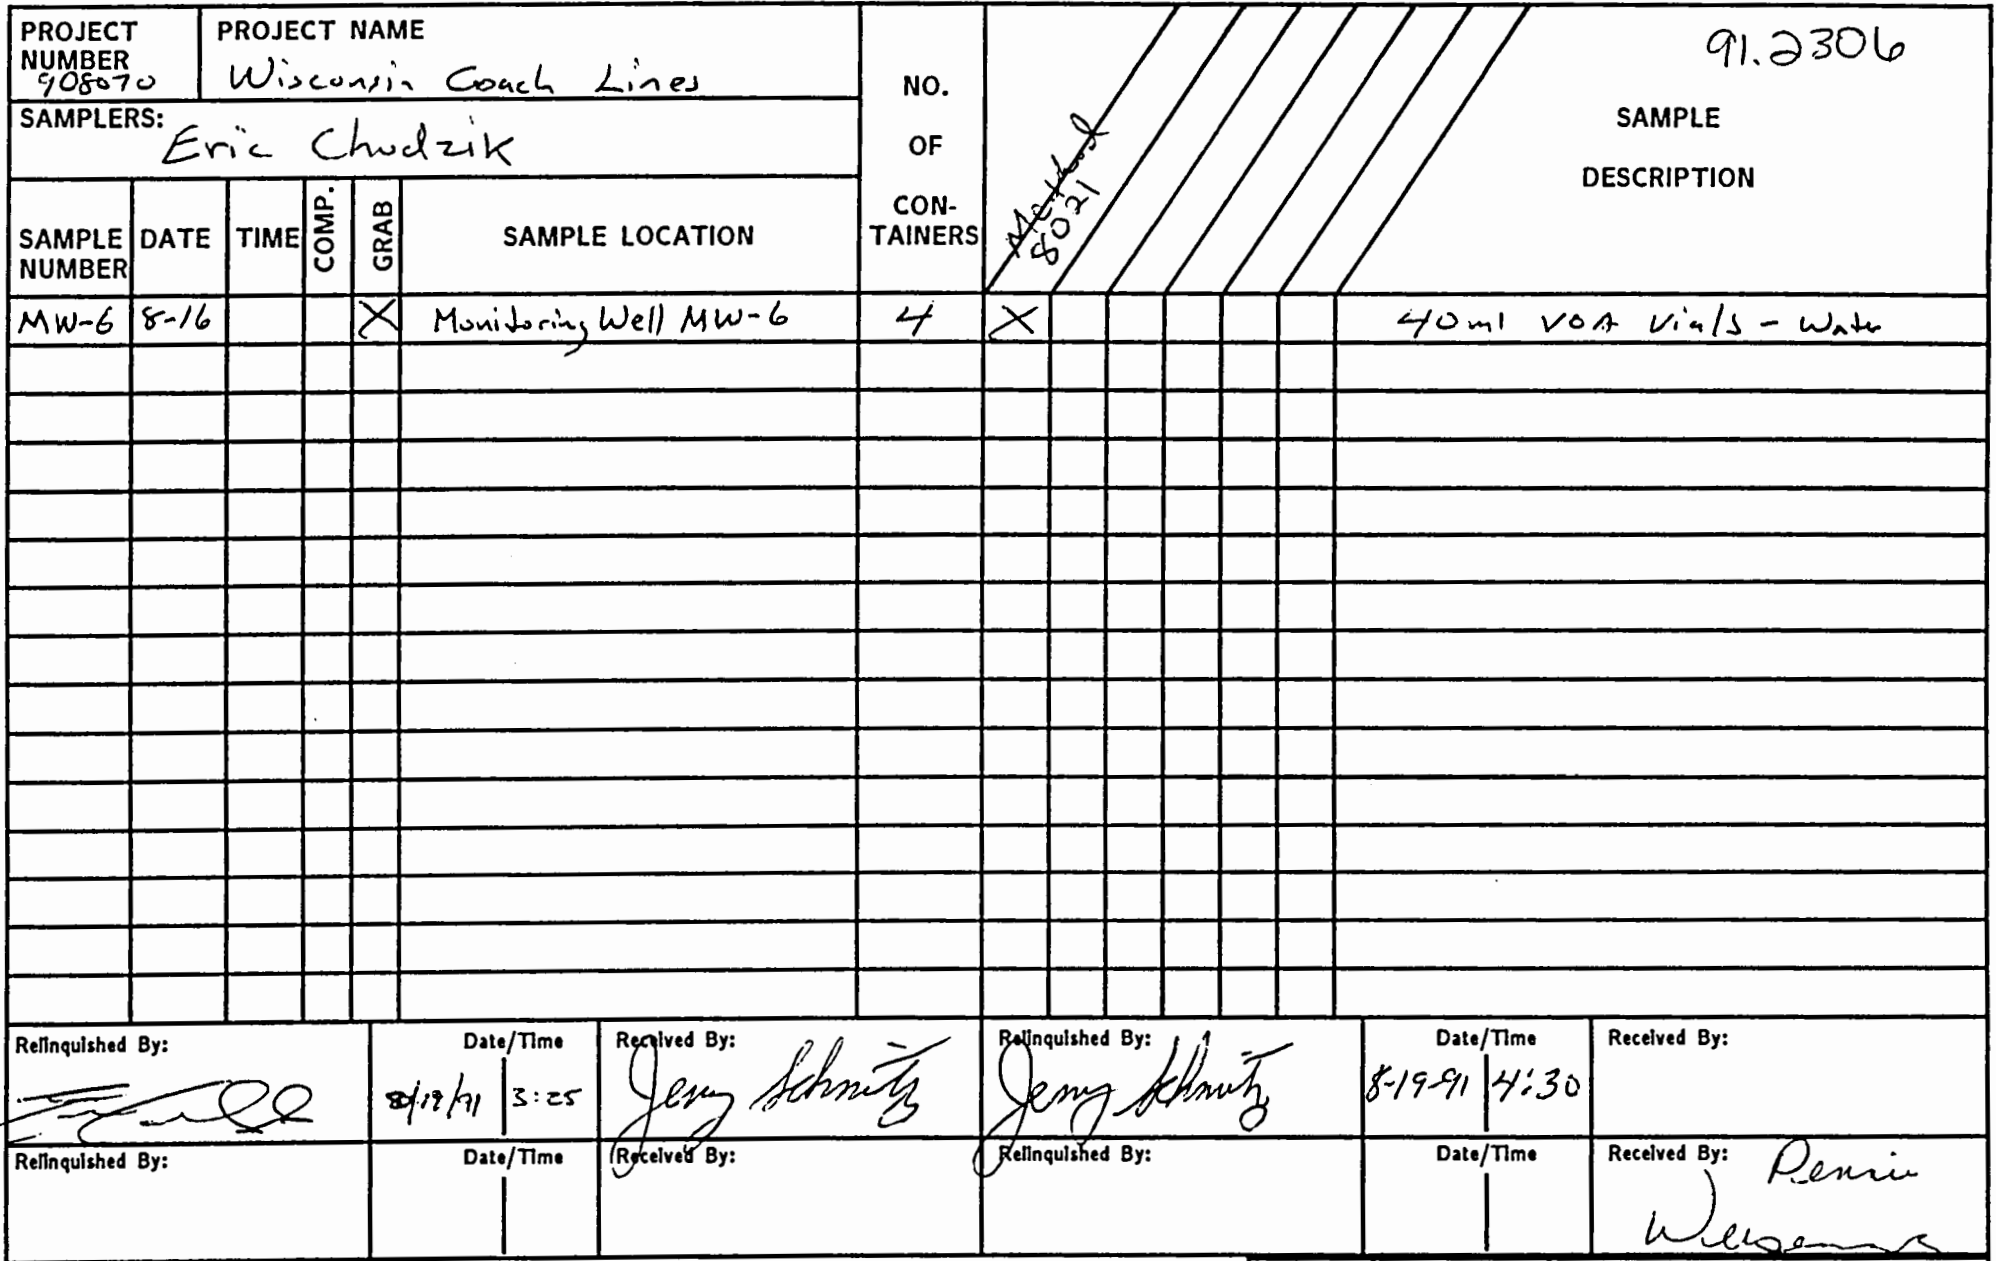 PROJECT NUMBER 908070
PROJECT NAME Wisconsin Coach Lines
91.2306
SAMPLERS: Eric Chudzik
SAMPLE NUMBER DATE TIME COMP. GRAB SAMPLE LOCATION NO. OF CON-TAINERS Method 8021 SAMPLE DESCRIPTION
MW-6 8-16 X Monitoring Well MW-6 4 X 40ml VOA Vials - Water
Relinquished By: Date/Time Received By: Relinquished By: Date/Time Received By:
3:25 Jerry Schmitz Jerry Schmitz 8-19-91 4:30
Relinquished By: Date/Time Received By: Relinquished By: Date/Time Received By: